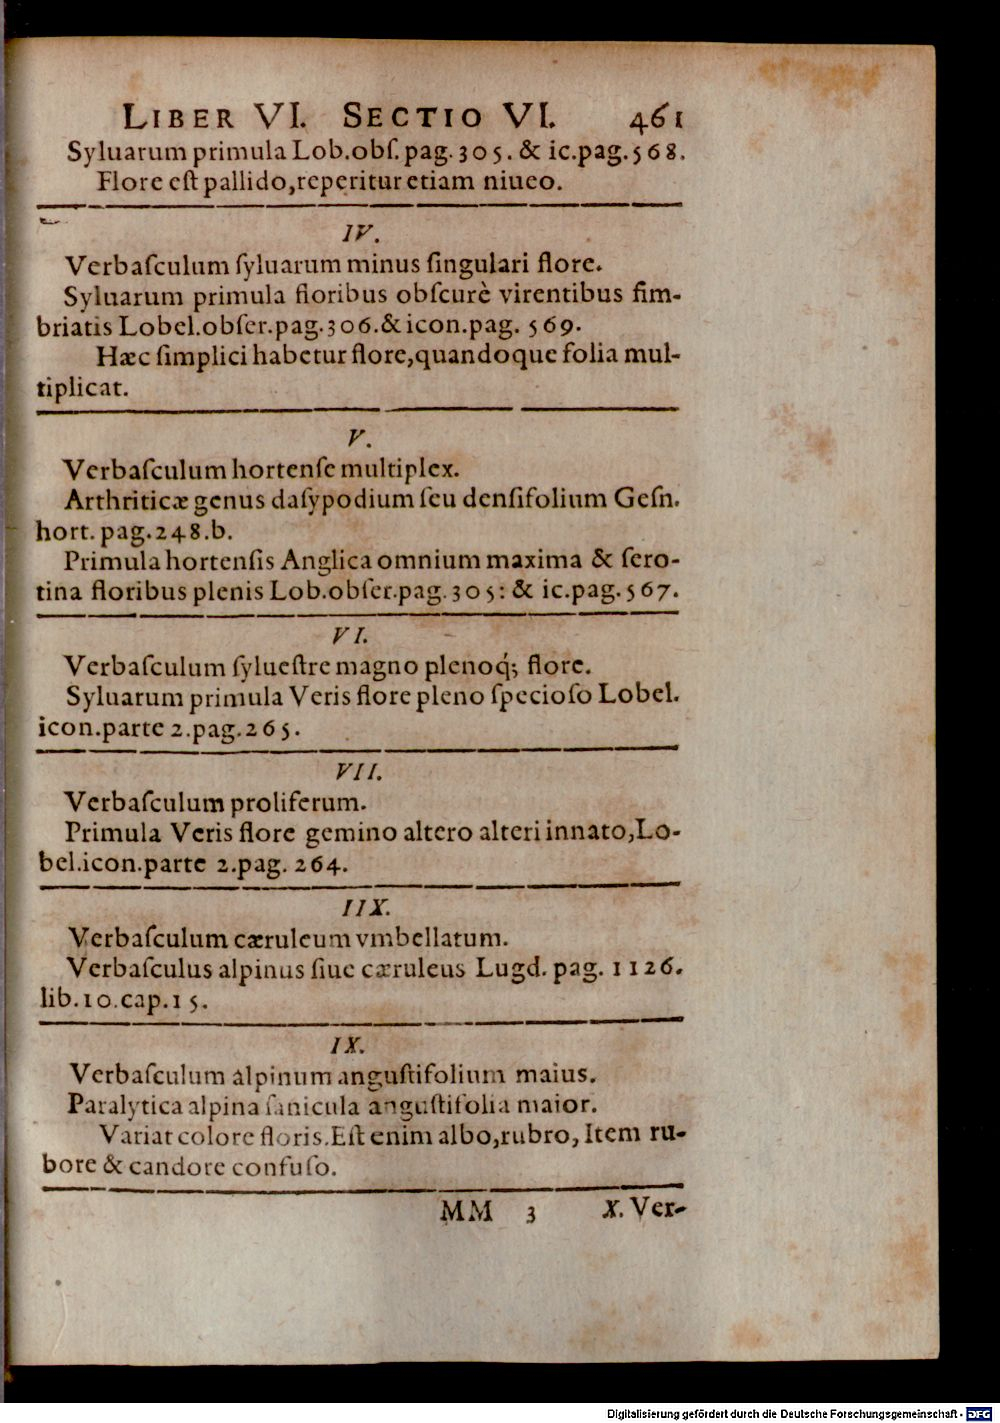 LIBER VI. SECTIO VI. 461
Syluarum primula Lob.obſ.pag.305. & ic.pag.568.
Flore eſt pallido,reperitur etiam niueo.
IV.
Verbaſculum ſyluarum minus ſingulari flore.
Syluarum primula floribus obſcurè virentibus fim-
briatis Lobel.obſer.pag.306.& icon.pag. 569.
Hæc ſimplici habetur flore,quandoque folia mul-
tiplicat.
V.
Verbaſculum hortenſe multiplex.
Arthriticæ genus daſypodium ſeu denſifolium Geſn.
hort. pag.248.b.
Primula hortenſis Anglica omnium maxima & ſero-
tina floribus plenis Lob.obſer.pag.305: & ic.pag.567.
VI.
Verbaſculum ſylueſtre magno plenoq́; flore.
Syluarum primula Veris flore pleno ſpecioſo Lobel.
icon.parte 2.pag.265.
VII.
Verbaſculum proliferum.
Primula Veris flore gemino altero alteri innato,Lo-
bel.icon.parte 2.pag. 264.
IIX.
Verbaſculum cæruleum vmbellatum.
Verbaſculus alpinus ſiue cæruleus Lugd. pag. 1126.
lib.10.cap.15.
IX.
Verbaſculum alpinum anguſtifolium maius.
Paralytica alpina ſanicula anguſtifolia maior.
Variat colore floris.Eſt enim albo,rubro, Item ru-
bore & candore confuſo.
MM 3 X. Ver-
Digitalisierung gefördert durch die Deutsche Forschungsgemeinschaft - DFG